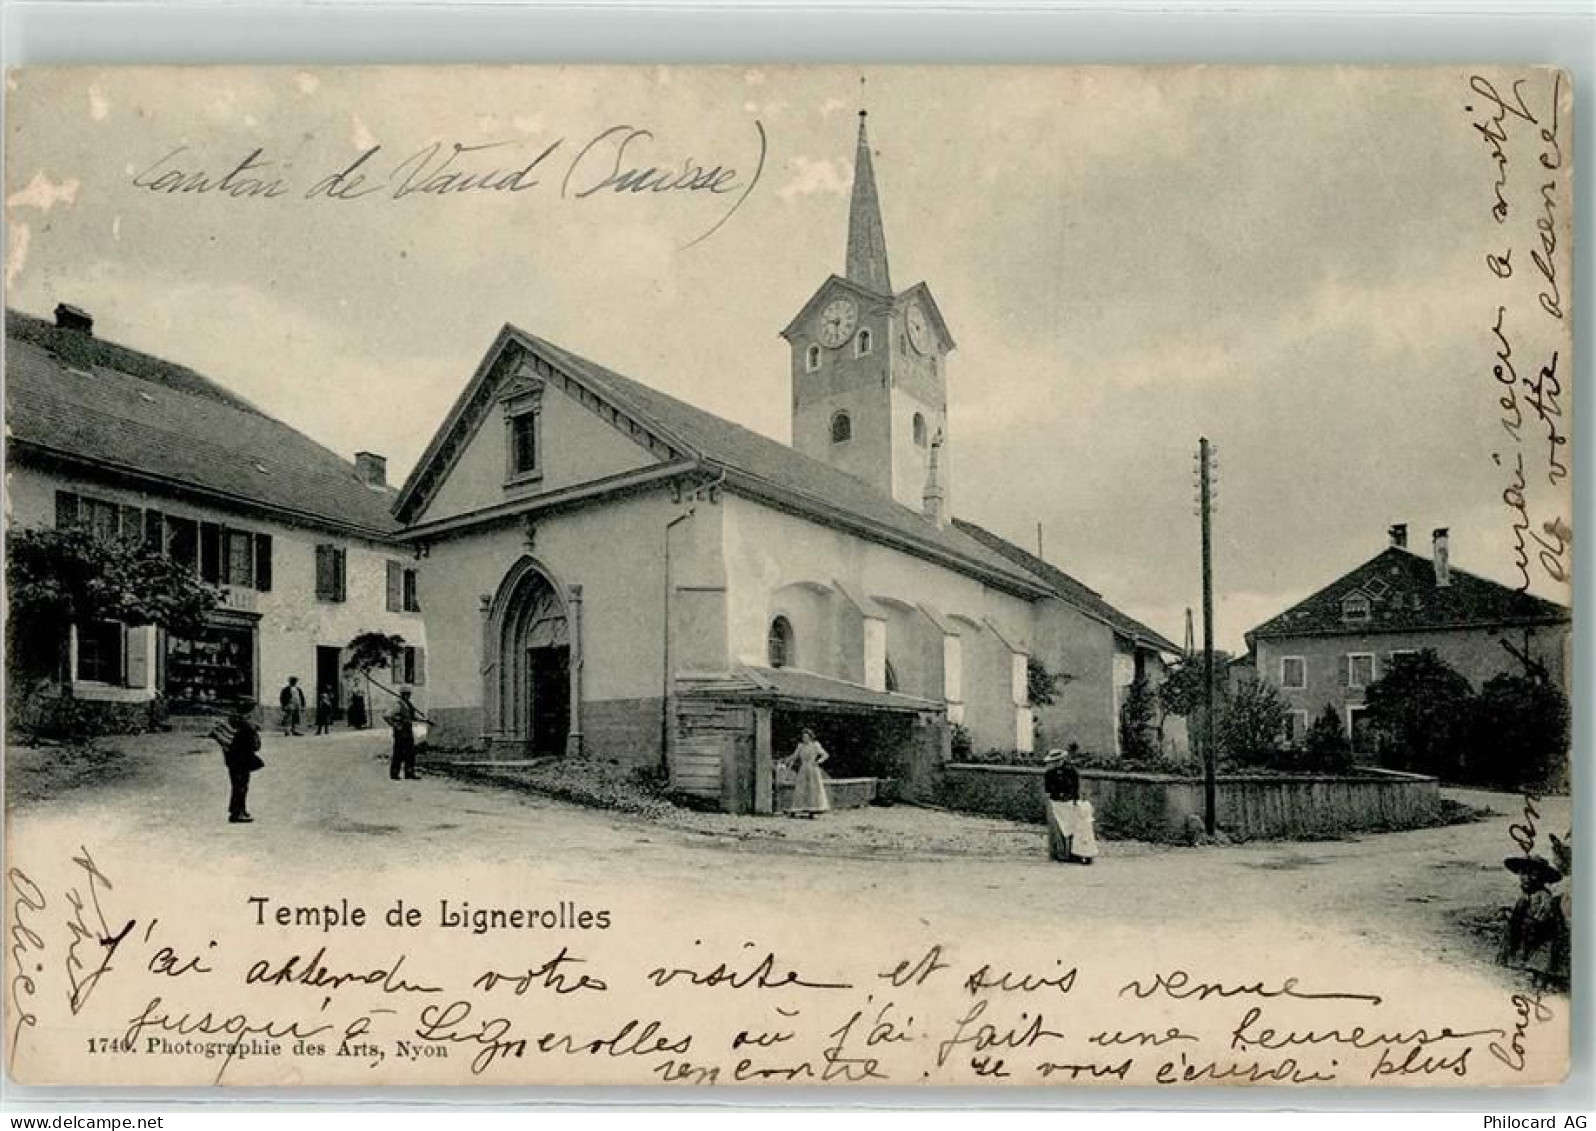 Canton de Vaud (Suisse)
Temple de Lignerolles
J'ai attendu votre visite et suis venue
jusqu'à Lignerolles où j'ai fait une heureuse
rencontre. Je vous écrirai plus
long
vrai
le motif
de votre absence
Alice
1746. Photographie des Arts, Nyon
Philocard AG